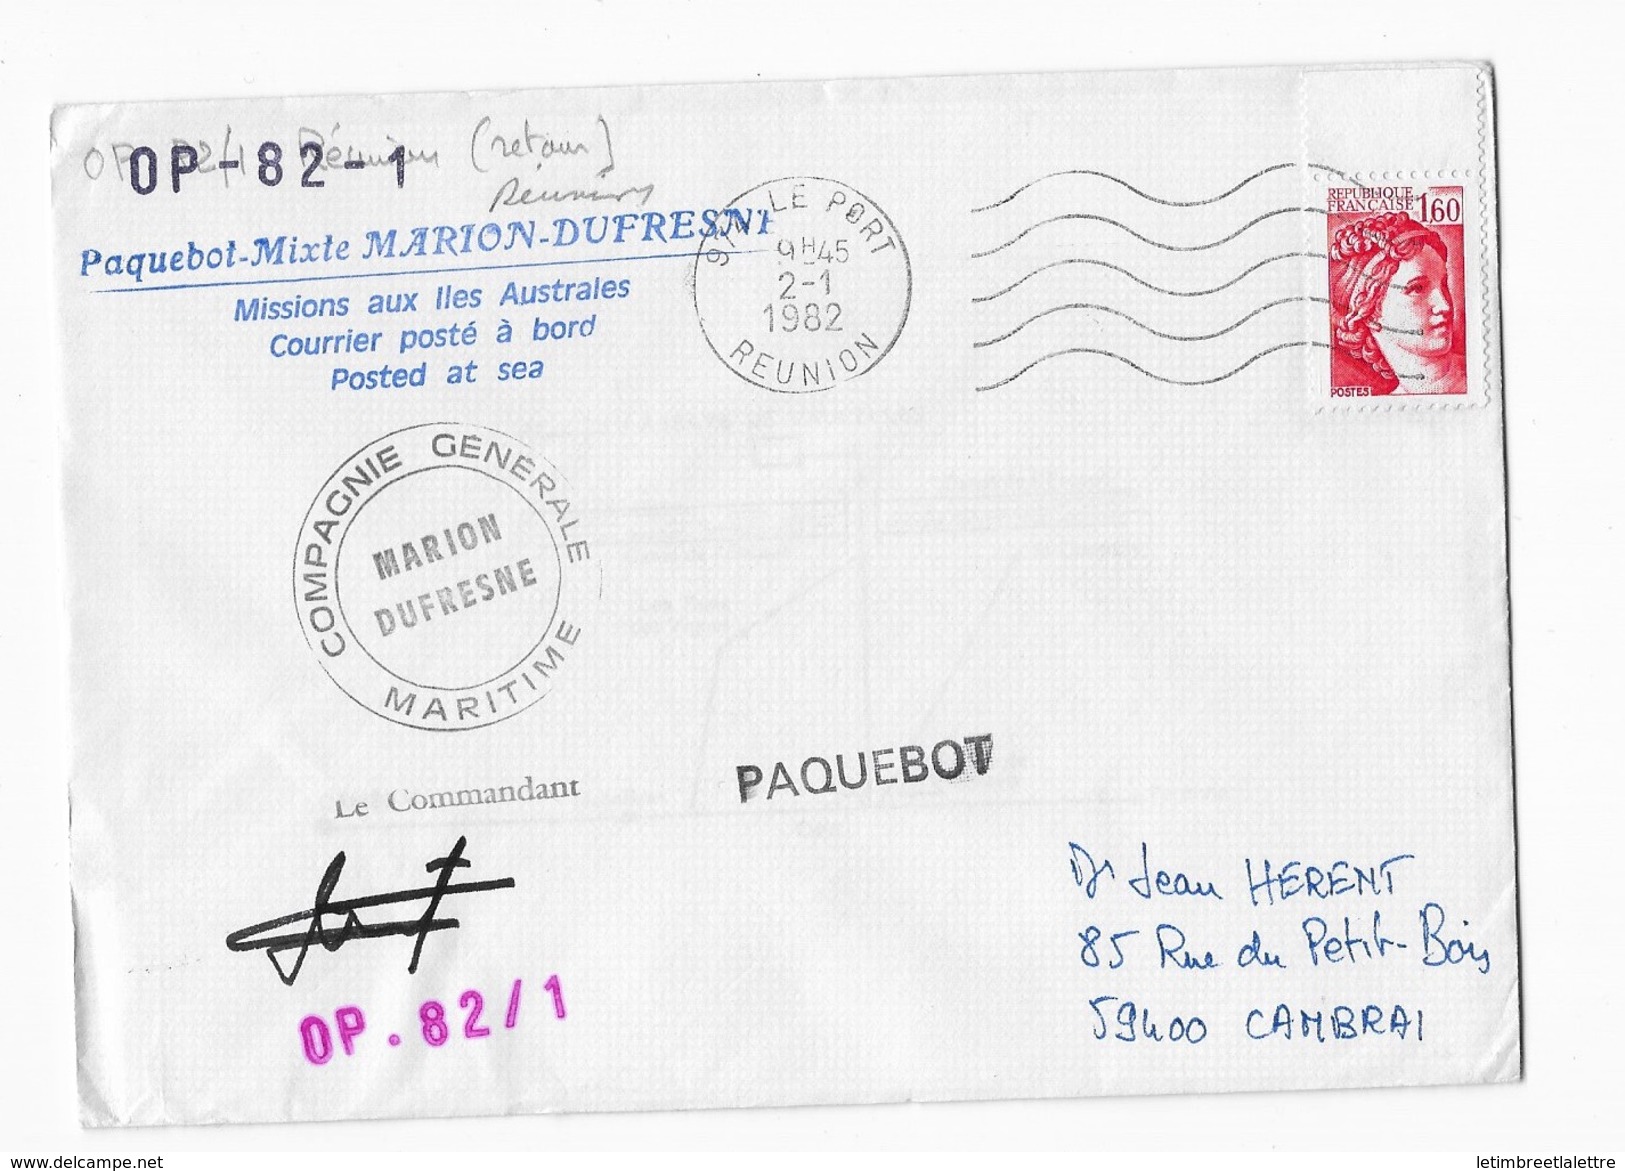 OP 82/1 Réunion (retour)
Réunion
OP-82-1
Paquebot-Mixte MARION-DUFRESNE
Missions aux Iles Australes
Courrier posté à bord
Posted at sea
LE PORT
9H45
2-1
1982
REUNION
REPUBLIQUE
FRANÇAISE 1,60
POSTES
COMPAGNIE GÉNÉRALE
MARITIME
MARION
DUFRESNE
PAQUEBOT
Le Commandant
OP.82/1
Dr Jean HERENT
85 Rue du Petit-Bois
59400 CAMBRAI
delcampe.net
letimbreetlalettre